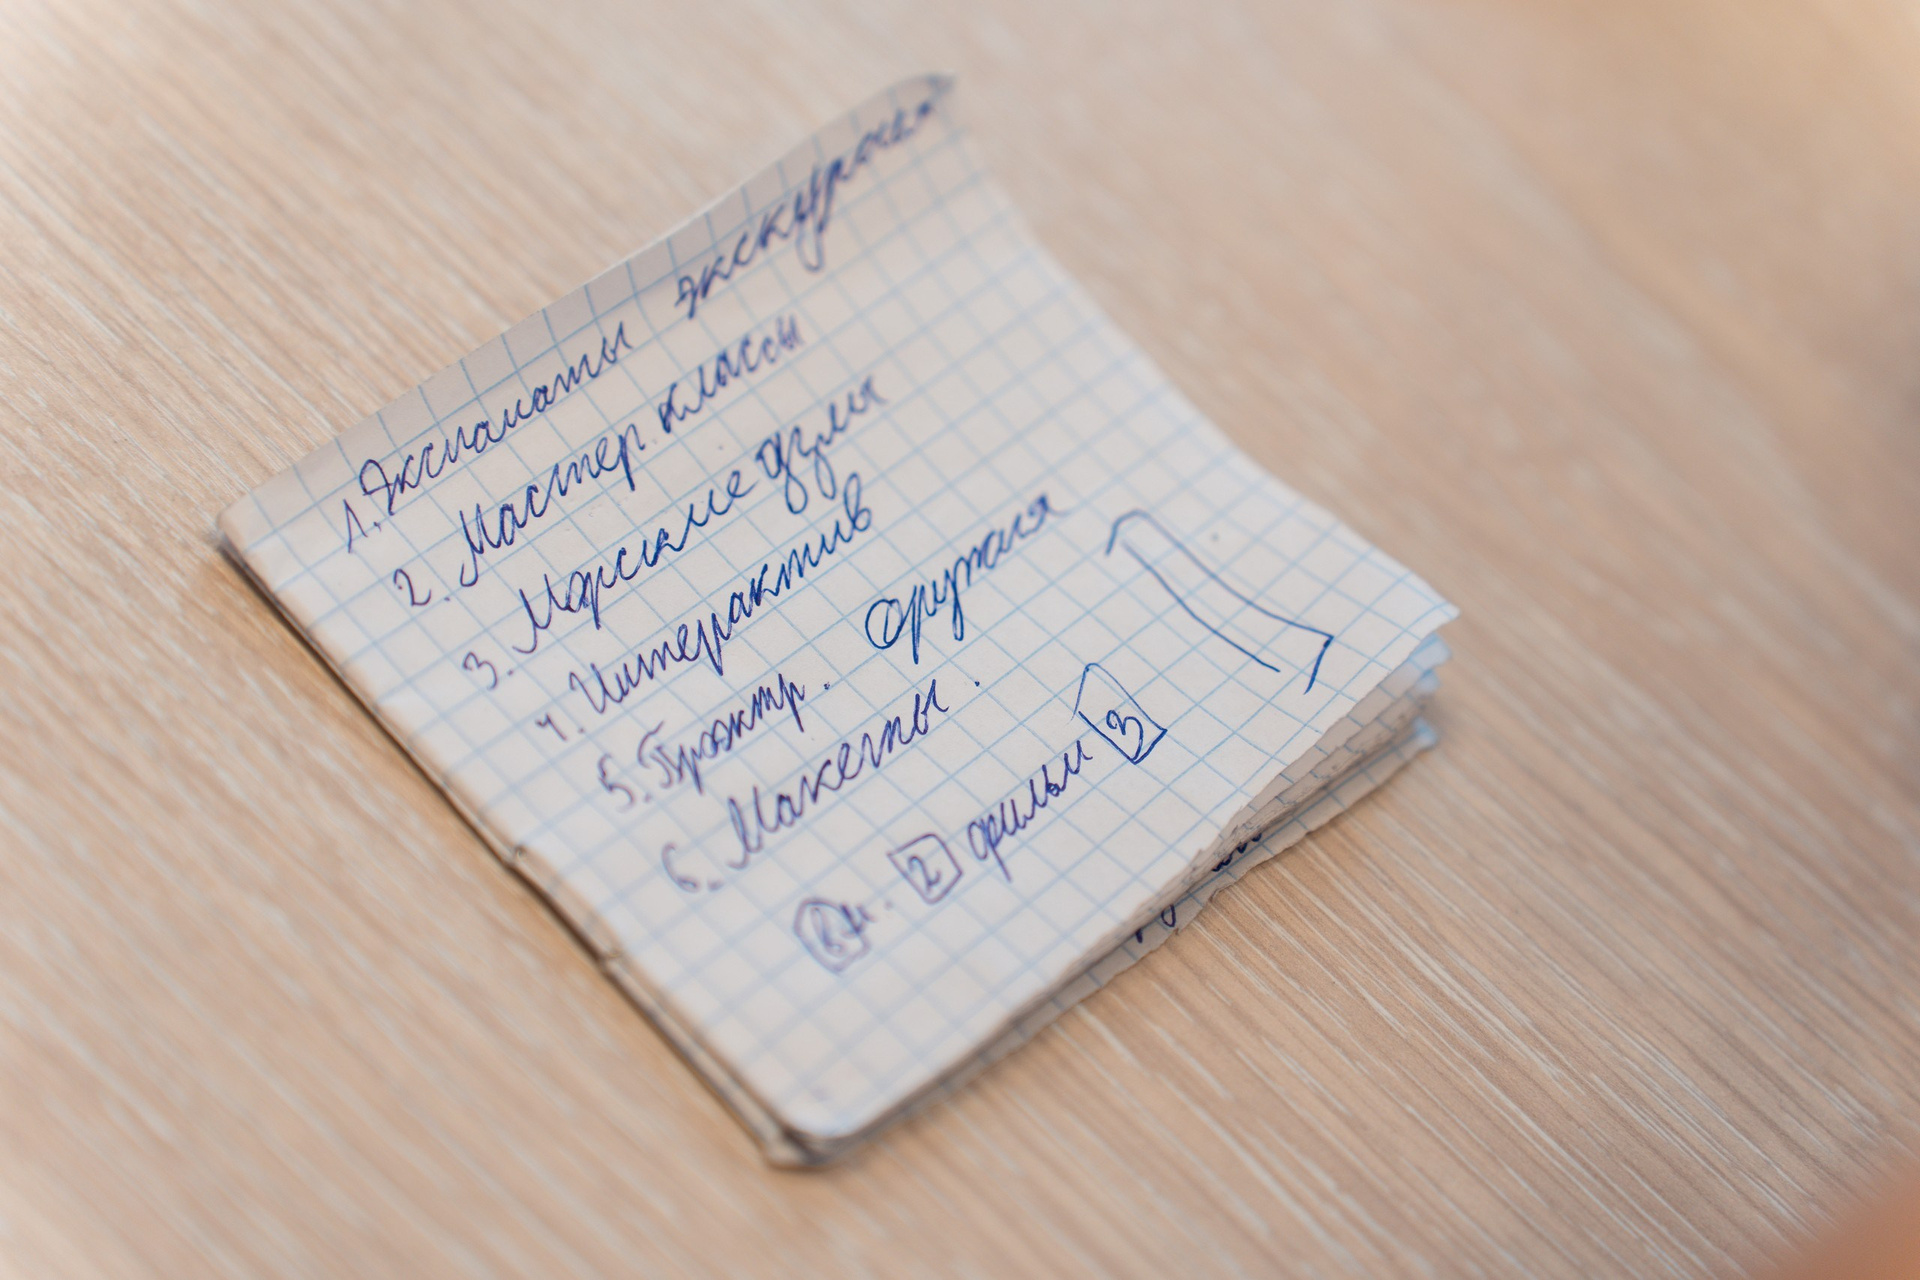 1. Экспонаты экскурсия
2. Мастер классы
3. Морские узлы
4. Интерактив
5. оружия
6. Макеты.
2 фильм 3